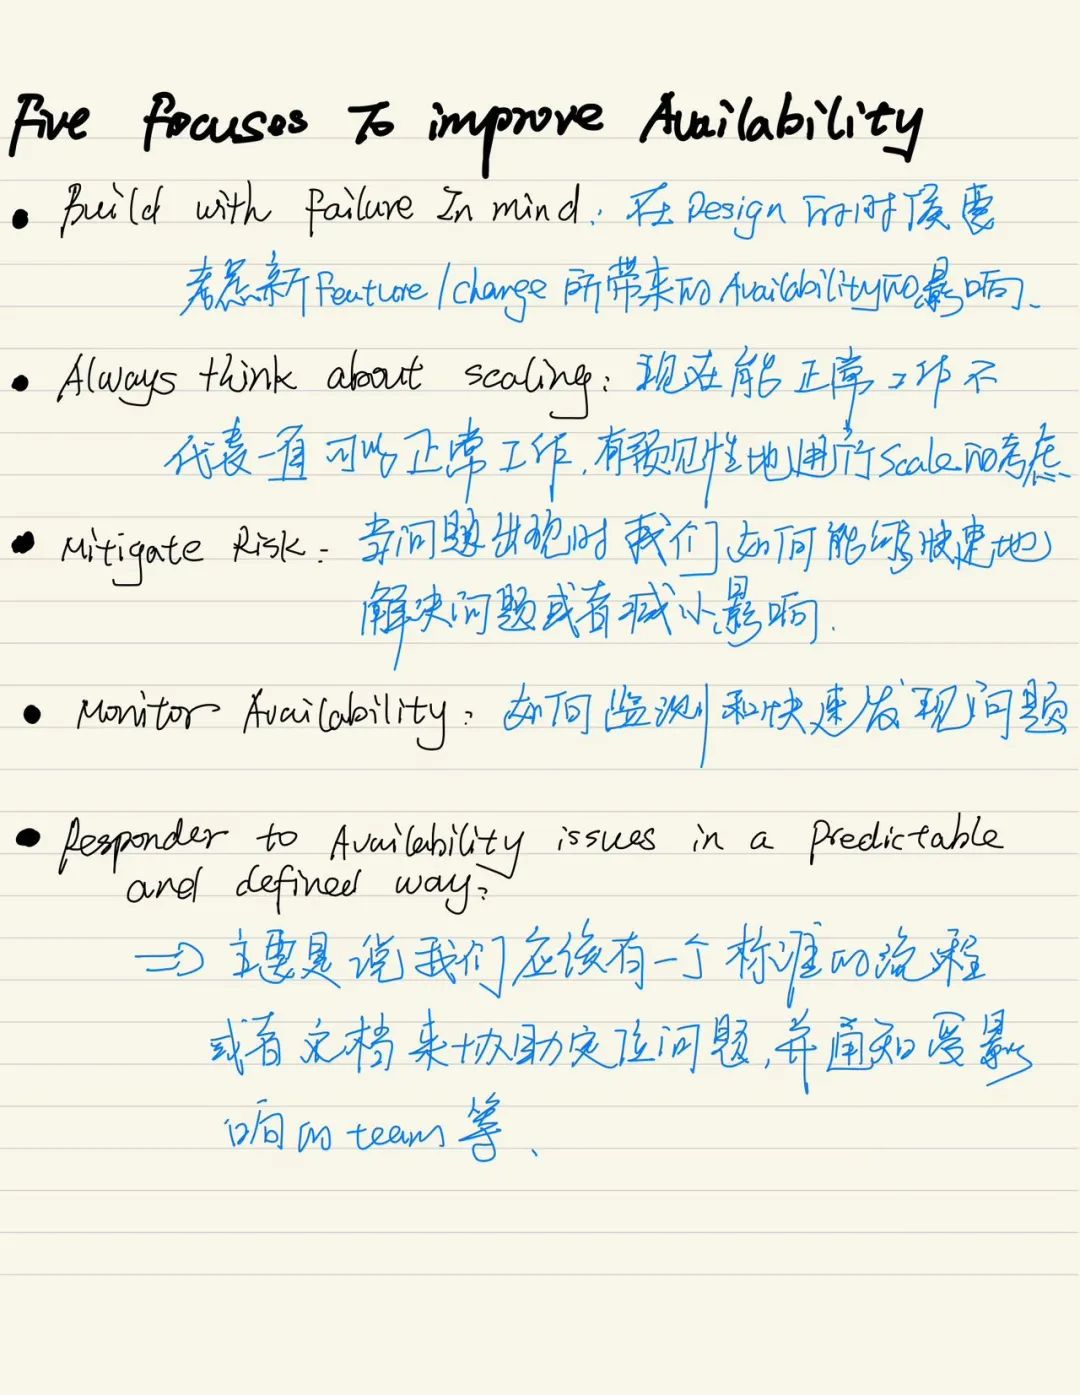 Five focuses To improve Availability
• Build with failure In mind: 在 Design 的时候要
考虑新 feature/change 所带来的 Availability 的影响.
• Always think about scaling: 现在能正常工作不
代表一直可以正常工作, 有预见性地进行 scale 的考虑
• Mitigate Risk: 当问题出现时我们如何能够快速地
解决问题或者减小影响.
• Monitor Availability: 如何监测和快速发现问题
• Responder to Availability issues in a Predictable
and defined way:
=> 主要是说我们应该有一个标准的流程
或者文档来协助定位问题, 并通知受影
响的 team 等.